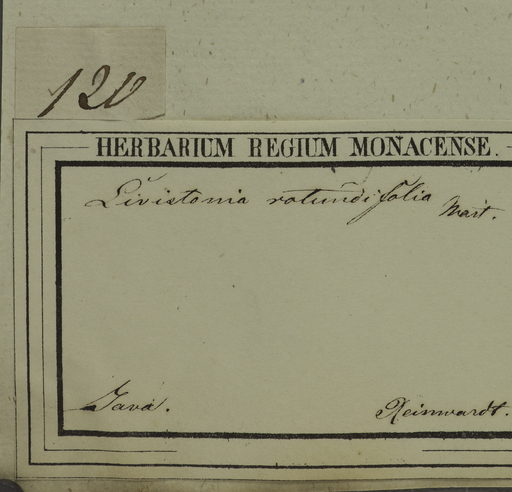 120
HERBARIUM REGIUM MONACENSE.
Livistonia rotundifolia Mart.
Java. Reinwardt.